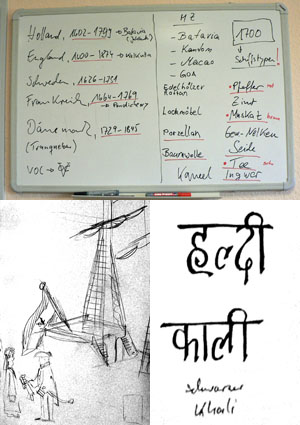 Holland, 1602-1799 → Batavia
England, 1600-1874 → Kalkutta
Schweden, 1626-1751
Frankreich, 1664-1769
→ Pondichery
Dänemark, 1729-1845
(Tranquebar)
VOC →
HZ
- Batavia
- Kanton
- Macao
- Goa
Edelhölzer
Lackmöbel
Porzellan
Baumwolle
Kaneel
1700
↓
Schiffstypen!
Pfeffer
Zimt
Muskat
Gew.-Nelken
Seide
Tee
Ingwer
हल्दी
काली
schwarzer